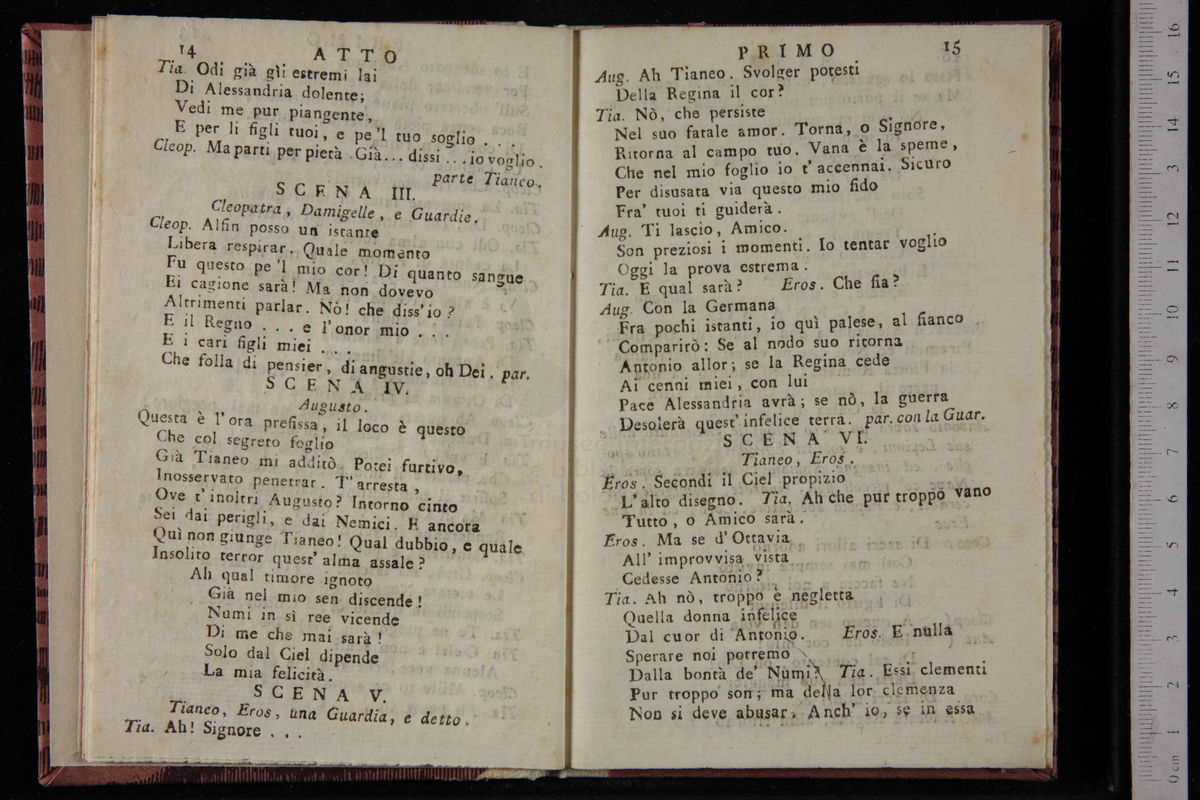 14 ATTO
Tia. Odi già gli estremi lai
Di Alessandria dolente;
Vedi me pur piangente,
E per li figli tuoi, e pe'l tuo soglio . . .
Cleop. Ma parti per pietà. Già... dissi ... io voglio.
parte Tianeo.
SCENA III.
Cleopatra, Damigelle, e Guardie.
Cleop. Alfin posso un istante
Libera respirar. Quale momento
Fu questo pe'l mio cor! Di quanto sangue
Ei cagione sarà! Ma non dovevo
Altrimenti parlar. Nò! che diss'io?
E il Regno . . . e l'onor mio . . .
E i cari figli miei . . .
Che folla di pensier, di angustie, oh Dei. par.
SCENA IV.
Augusto.
Questa è l'ora prefissa, il loco è questo
Che col segreto foglio
Già Tianeo mi additò. Potei furtivo,
Inosservato penetrar. T'arresta,
Ove t'inoltri Augusto? Intorno cinto
Sei dai perigli, e dai Nemici. E ancora
Quì non giunge Tianeo! Qual dubbio, e quale
Insolito terror quest' alma assale?
Ah qual timore ignoto
Già nel mio sen discende!
Numi in sì ree vicende
Di me che mai sarà!
Solo dal Ciel dipende
La mia felicità.
SCENA V.
Tianeo, Eros, una Guardia, e detto.
Tia. Ah! Signore . . .
PRIMO 15
Aug. Ah Tianeo. Svolger potesti
Della Regina il cor?
Tia. Nò, che persiste
Nel suo fatale amor. Torna, o Signore,
Ritorna al campo tuo. Vana è la speme,
Che nel mio foglio io t'accennai. Sicuro
Per disusata via questo mio fido
Fra' tuoi ti guiderà.
Aug. Ti lascio, Amico.
Son preziosi i momenti. Io tentar voglio
Oggi la prova estrema.
Tia. E qual sarà? Eros. Che fia?
Aug. Con la Germana
Fra pochi istanti, io quì palese, al fianco
Comparirò: Se al nodo suo ritorna
Antonio allor; se la Regina cede
Ai cenni miei, con lui
Pace Alessandria avrà; se nò, la guerra
Desolerà quest' infelice terra. par. con la Guar.
SCENA VI.
Tianeo, Eros.
Eros. Secondi il Ciel propizio
L'alto disegno. Tia. Ah che pur troppo vano
Tutto, o Amico sarà.
Eros. Ma se d'Ottavia
All' improvvisa vista
Cedesse Antonio?
Tia. Ah nò, troppo è negletta
Quella donna infelice
Dal cuor di Antonio. Eros. E nulla
Sperare noi potremo
Dalla bontà de' Numi? Tia. Essi clementi
Pur troppo son; ma della lor clemenza
Non si deve abusar. Anch' io, se in essa
0 cm 1 2 3 4 5 6 7 8 9 10 11 12 13 14 15 16